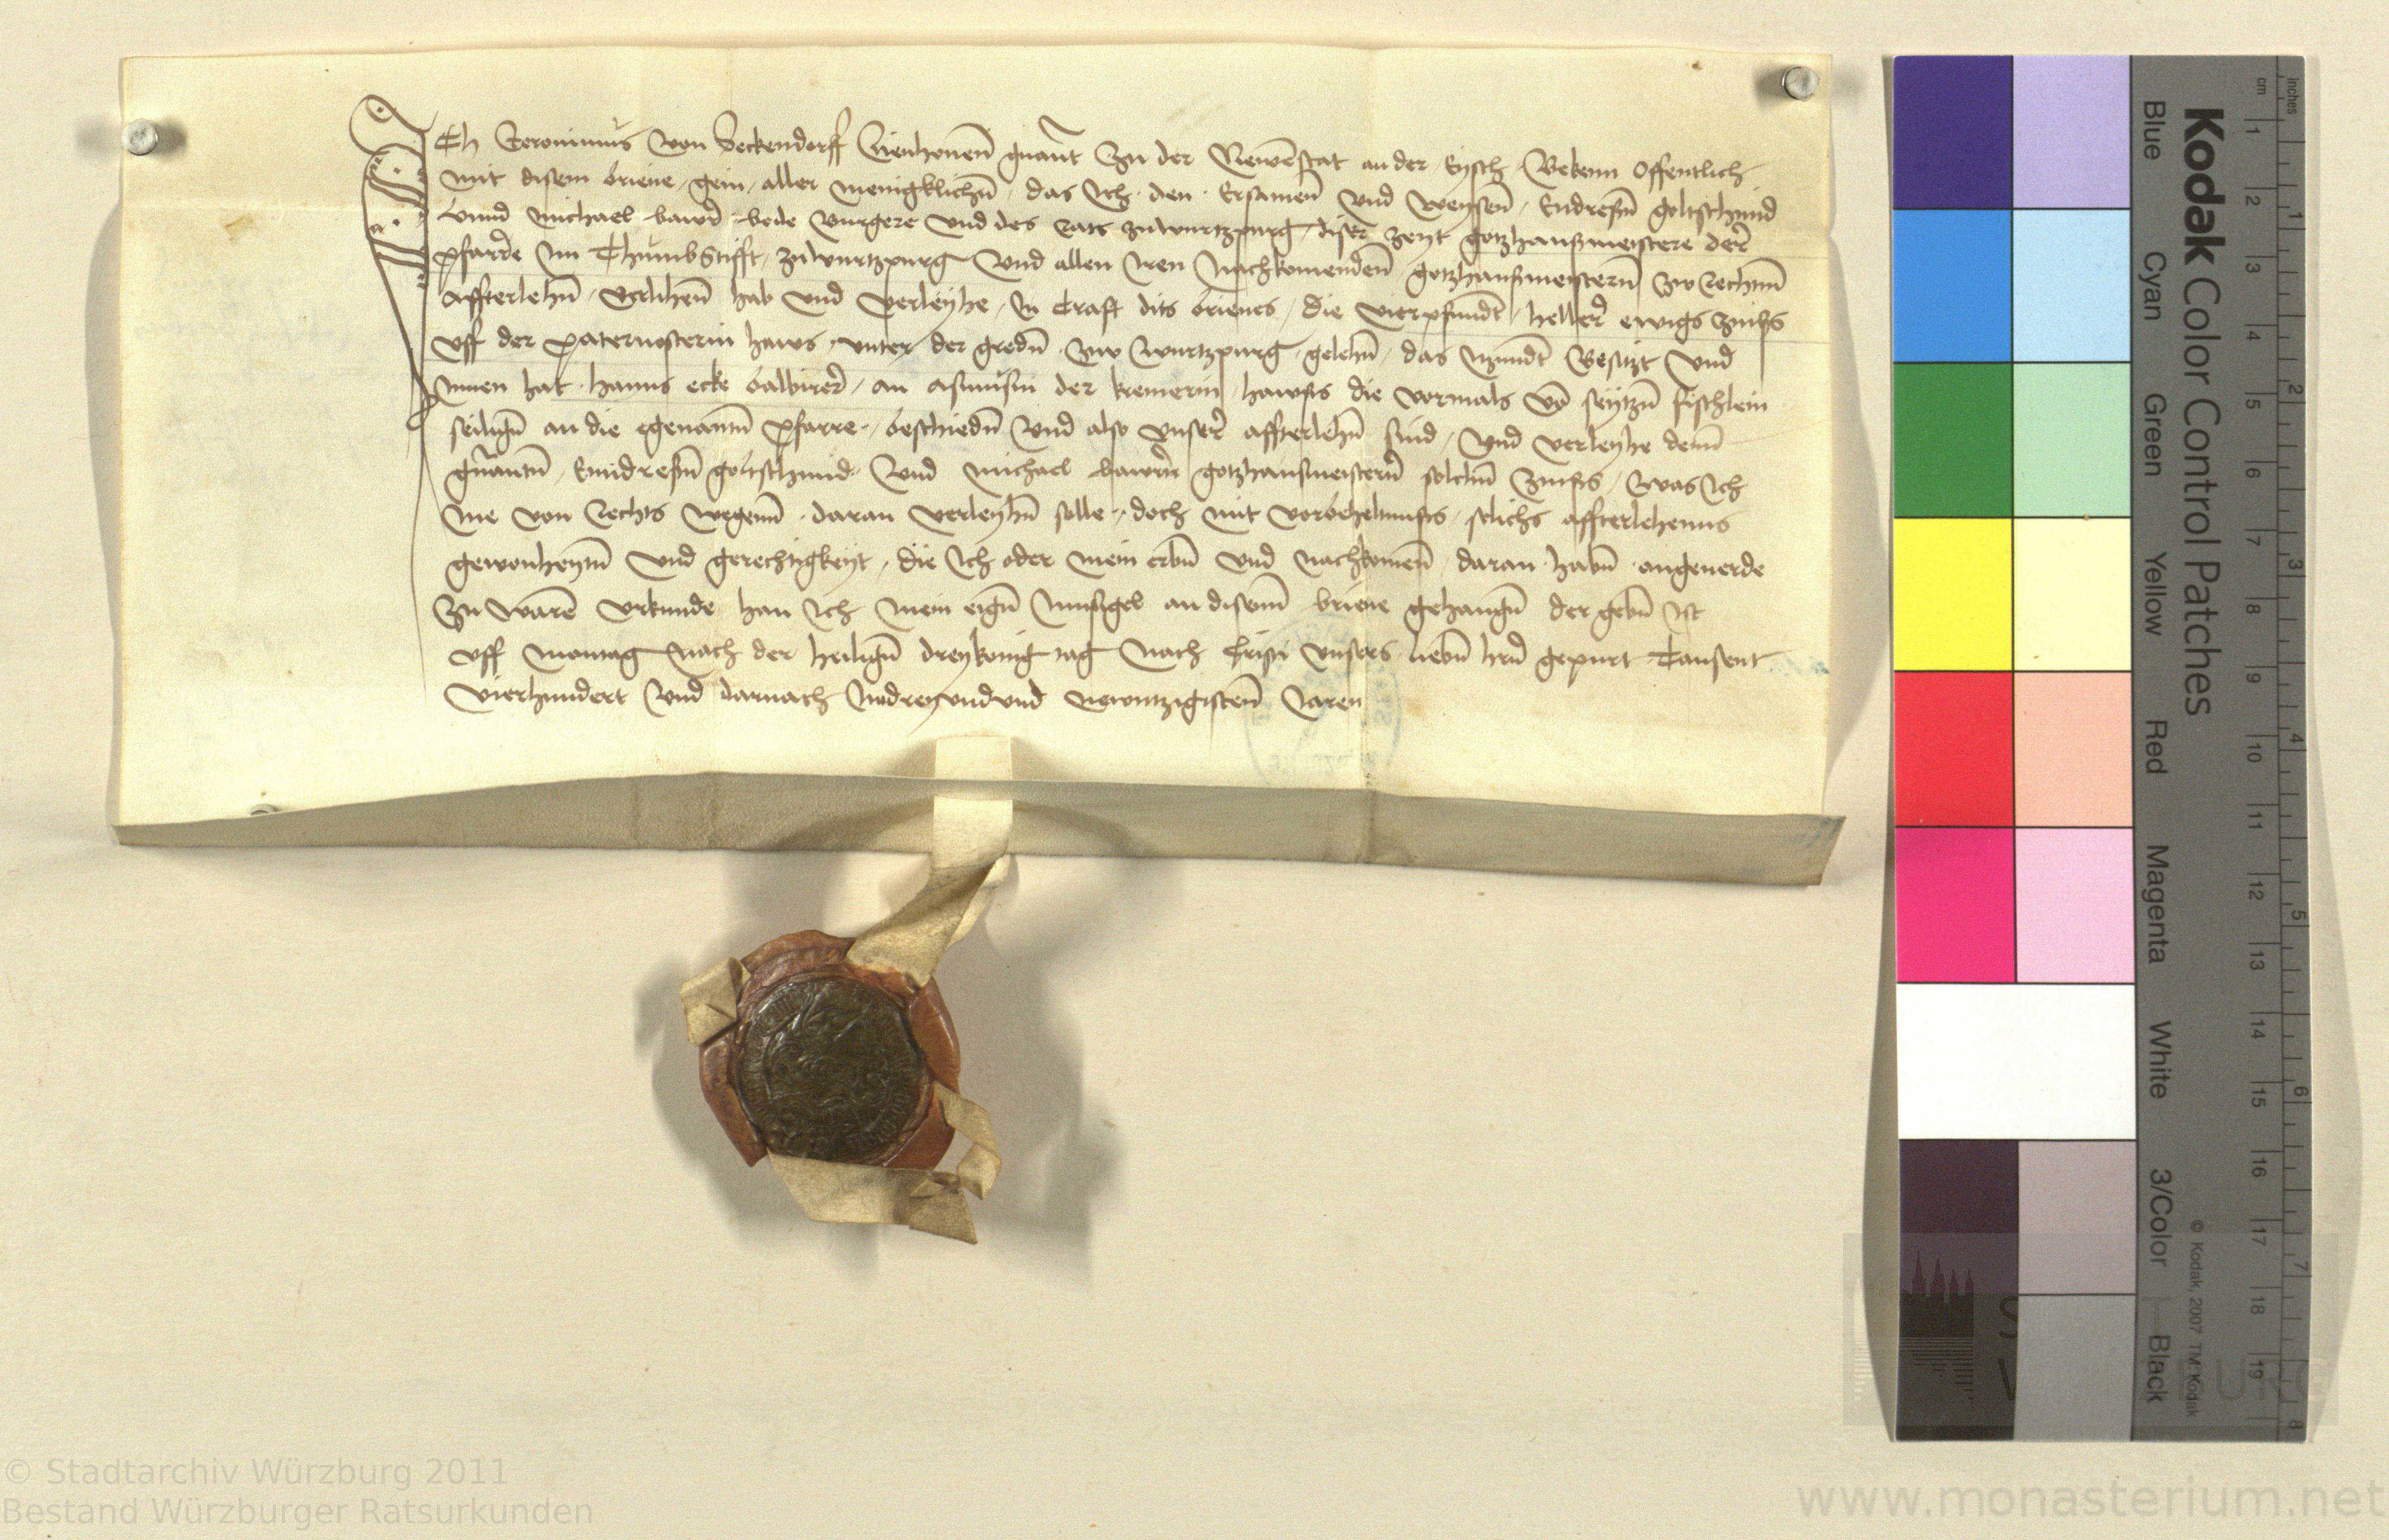 Ich Jeronimus von Seckendorff Nienhouen gnant zu der Newenstat an der Eysch Bekenn Offentlich
mit disem brieue gein aller menigklichen das Ich den Ersamen vnd weysen Endresen goltschmid
vnnd Michael bawr bede burgere vnd des rats zu wurtzpurg diser zeyt gotzhausmeistere der
pfarre im Thumbstifft zu wurtzpurg vnd allen iren nachkomenden gotzhausmeistern zw rechtem
affterlehen verlihen hab vnd verleyhe In craft dits brieues die vierpfundt heller ewigs zinss
vff der paternosterin haws vnter der greden zw wurtzpurg gelegen das itzundt Besitzt vnd
innen hat hanns ecke balbirer an asmusin der kremerin hawss die vormals von seytzen fischlein
seiligen an die egenanten pfarre beschieden vnd also vnser affterlehen sind vnd verleyhe denn
gnanten Enndresen goltschmid vnd michael bawrn gotzhausmeistern solchen zinss was Ich
ine von rechts wegenn daran verleyhen solle doch mit vorbeheltnuss solichs affterlehenns
gewonheyten vnd gerechtigkeyt die Ich oder mein erben vnd nachkomen daran haben angeuerde
Zu waren vrkunde han Ich mein eigen Innsigel an disenn brieue gehangen der geben ist
vff montag nach der heiligen dreykonig tag nach Cristi vnsers lieben hern gepurt Tausent
vierhundert vnd darnach Im dreyvndvnd newntzigisten Jaren
Kodak Color Control Patches
Blue Cyan Green Yellow Red Magenta White 3/Color Black
© Kodak, 2007 TM: Kodak
cm 1 2 3 4 5 6 7 8 9 10 11 12 13 14 15 16 17 18 19
inches 1 2 3 4 5 6 7 8
© Stadtarchiv Würzburg 2011
Bestand Würzburger Ratsurkunden
www.monasterium.net